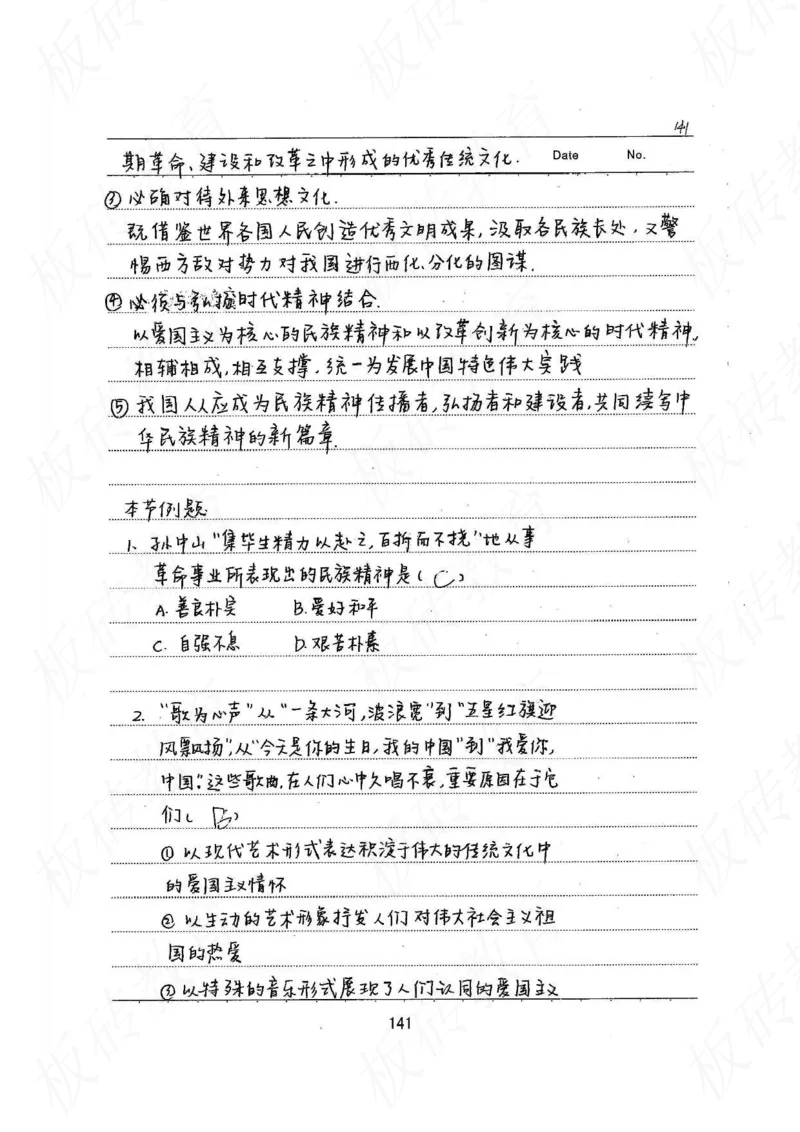 141
期革命、建设和改革之中形成的优秀传统文化. Date No.
③ 必确对待外来思想文化.
既借鉴世界各国人民创造优秀文明成果,汲取各民族长处,又警
惕西方敌对势力对我国进行西化、分化的图谋.
④ 必须与弘扬时代精神结合.
以爱国主义为核心的民族精神和以改革创新为核心的时代精神,
相辅相成,相互支撑,统一为发展中国特色伟大实践
⑤ 我国人人应成为民族精神传播者,弘扬者和建设者,共同续写中
华民族精神的新篇章.
本节例题
1. 孙中山"集毕生精力以赴之,百折而不挠"地从事
革命事业所表现出的民族精神是( C )
A. 善良朴实 B. 爱好和平
C. 自强不息 D. 艰苦朴素
2. "歌为心声"从"一条大河,波浪宽"到"五星红旗迎
风飘扬",从"今天是你的生日,我的中国"到"我爱你,
中国."这些歌曲,在人们心中久唱不衰,重要原因在于它
们( B )
① 以现代艺术形式表达积淀于伟大的传统文化中
的爱国主义情怀
② 以生动的艺术形象抒发人们对伟大社会主义祖
国的热爱
③ 以特殊的音乐形式展现了人们认同的爱国主义
141
板砖教育